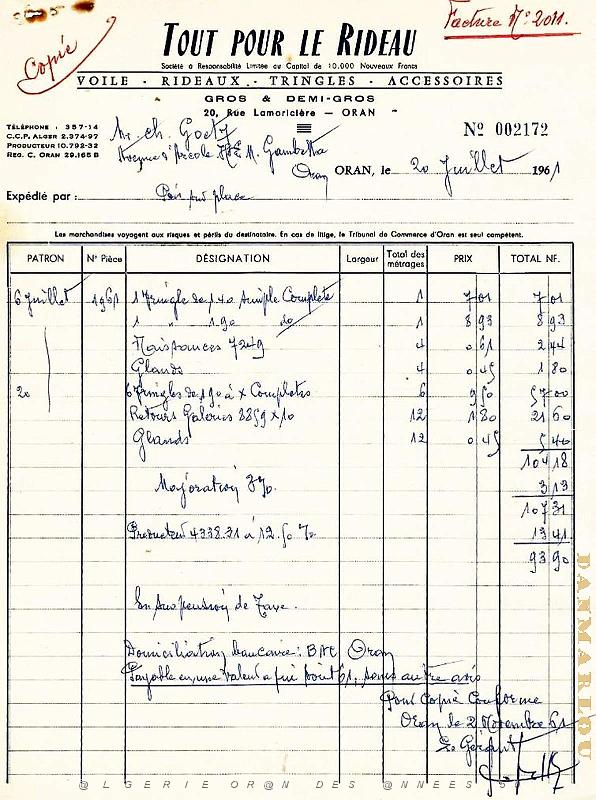 Facture N° 2011.
Copie
TOUT POUR LE RIDEAU
Société à Responsabilité Limitée au Capital de 10.000 Nouveaux Francs
VOILE - RIDEAUX - TRINGLES - ACCESSOIRES
GROS & DEMI-GROS
20, Rue Lamoricière — ORAN
TÉLÉPHONE : 357-14
C.C.P. ALGER 2.374-97
PRODUCTEUR 10.792-32
REG. C. ORAN 29.165 B
No 002172
Mr. Ch. Goetz
Avenue d'Arcole M. Gambetta
Oran
ORAN, le 20 Juillet 1961
Expédié par : Pris sur place
Les marchandises voyagent aux risques et périls du destinataire. En cas de litige, le Tribunal de Commerce d'Oran est seul compétent.
PATRON N° Pièce DÉSIGNATION Largeur Total des métrages PRIX TOTAL NF.
6 Juillet 1961 1 Tringle de 140 Simple Complète 1 7 01 7 01
1 " 190 do 1 8 93 8 93
Naissances 7249 4 0 61 2 44
Glands 4 0 45 1 80
20 6 Tringles de 190 à x Complètes 6 9 50 57 00
Retours Galeries 8859 x 10 12 1 80 21 60
Glands 12 0 45 5 40
104 18
Majoration 3% 3 13
107 31
Producteur 4338.31 à 12.50 % 13 41
93 90
En suspension de Taxe.
Domiciliation bancaire : Oran
Payable en une valeur à fin Août 61, sans autre avis
Pour Copie Conforme
Oran le 2 Novembre 61
Le Gérant
DANMARLOU
@LGERIE OR@N DES @NNEES 50